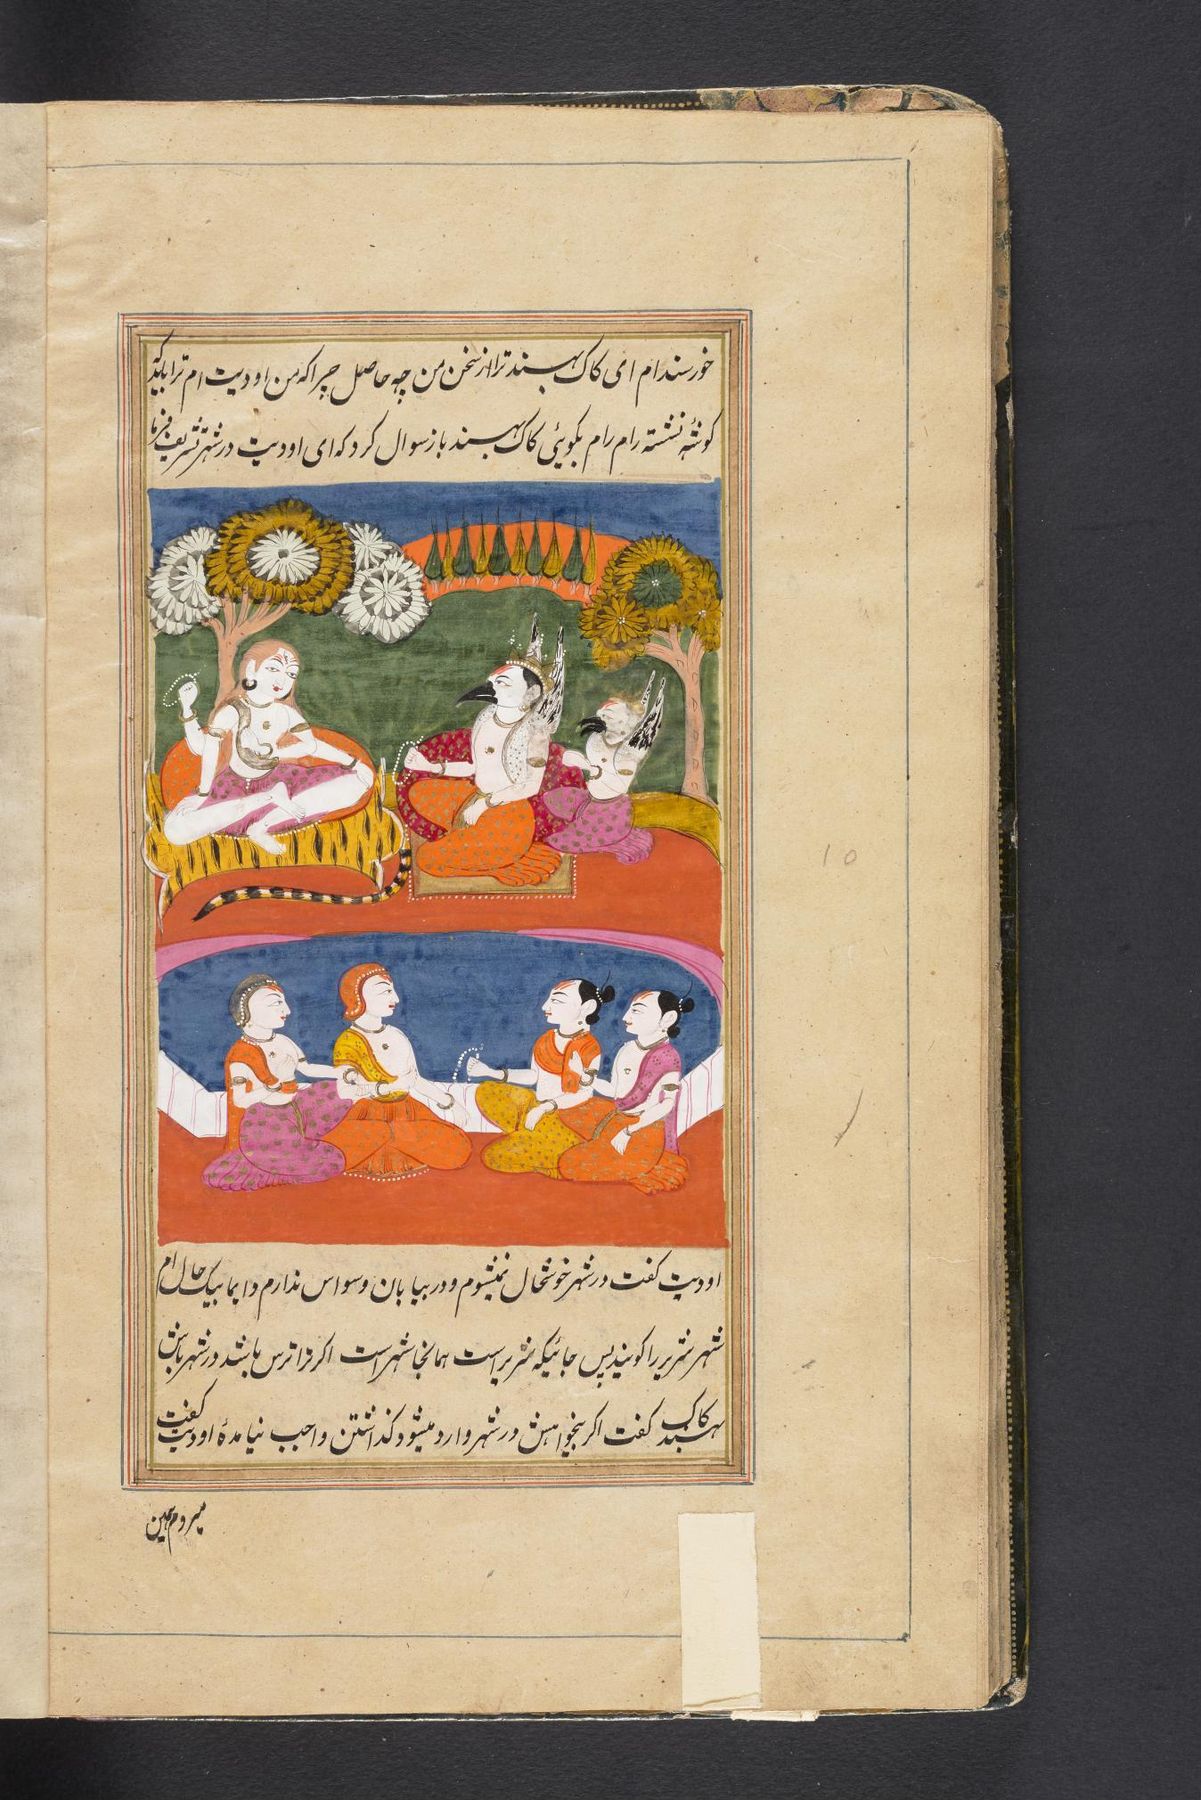 خورسند ام ای کاک بهسند ترا از سخن من چه حاصل چرا که من اودیت ام ترا باید که
کوشه نشسته رام رام بکوئی کاک بهسند باز سوال کرد که ای اودیت در شهر تشریف فرما
10
اودیت کفت در شهر خوشحال نمیشوم و در بیابان وسواس ندارم دایما بیک حال ام
شهر شریر را کویند پس جائیکه شریر است همانجا شهر است اکر ترا ترس باشد در شهر باش
کاک بهسند کفت اکر بخواهش در شهر وارد میشود کذاشتن واجب نیامده اودیت کفت